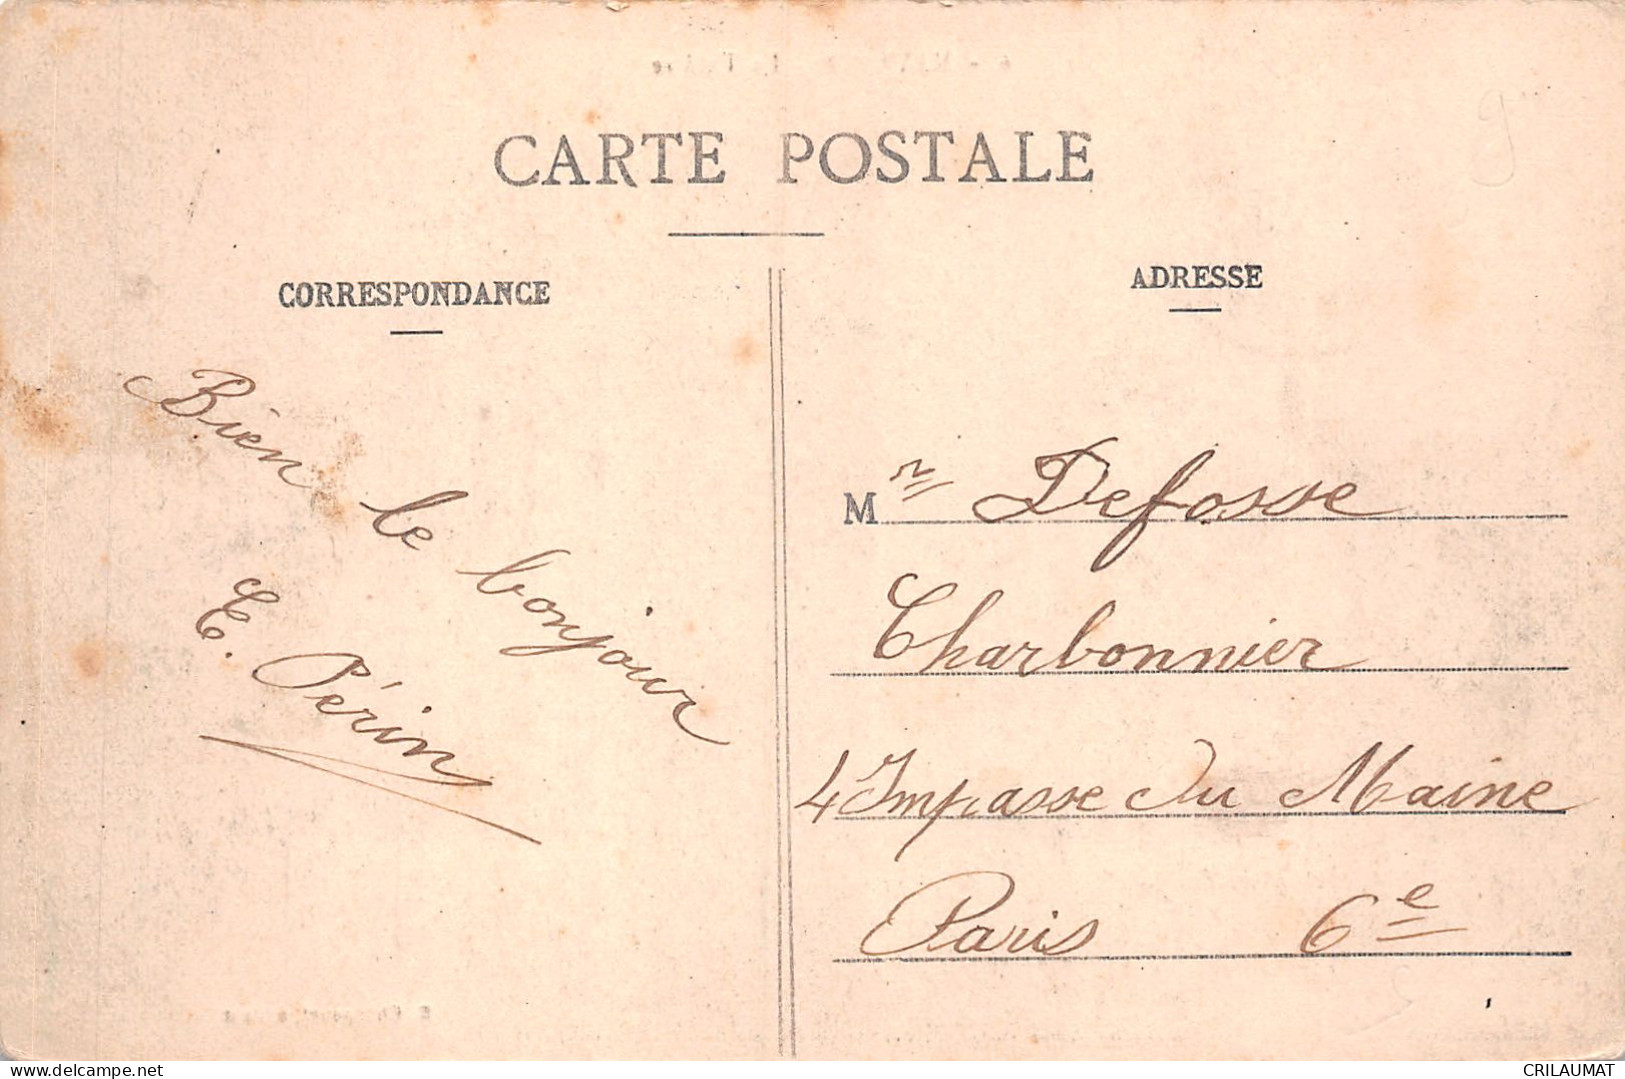 CARTE POSTALE
CORRESPONDANCE
ADRESSE
Bien le bonjour
E. Périn
Mr Defosse
Charbonnier
4 Impasse du Maine
Paris 6e
www.delcampe.net
CRILAUMAT